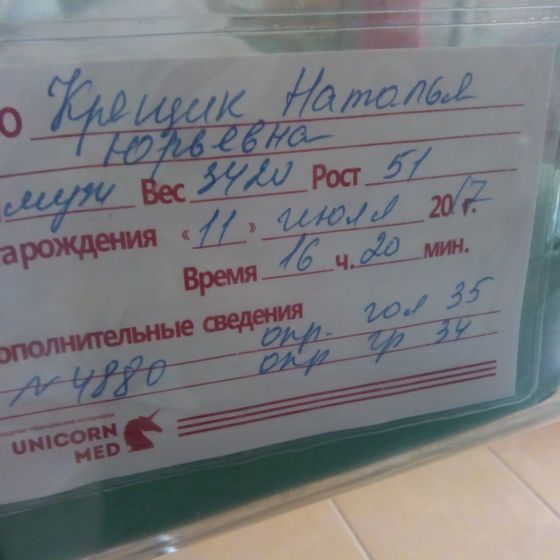 О Крещик Наталья
Юрьевна
муж Вес 3420 Рост 51
та рождения «11» июля 2017г.
Время 16 ч. 20 мин.
ополнительные сведения опр. гол 35
№ 4880 опр гр 34
UNICORN
MED